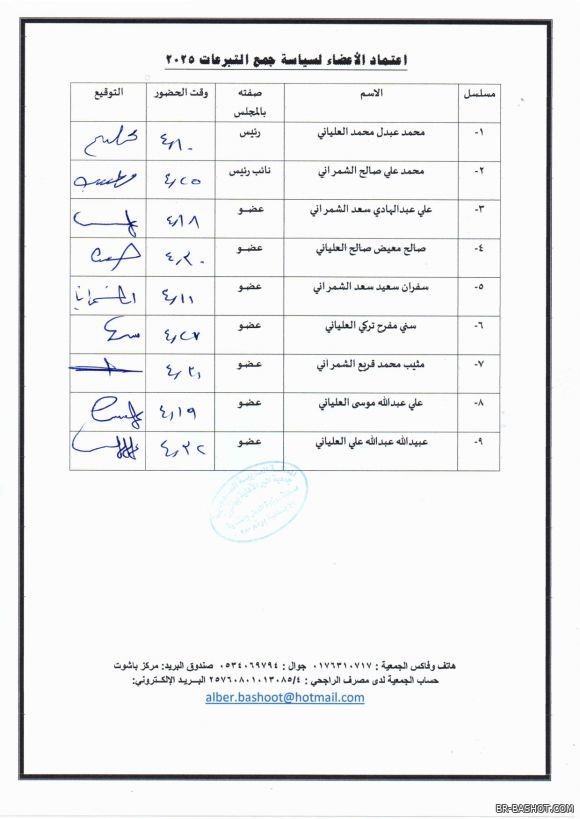 اعتماد الأعضاء لسياسة جمع التبرعات ٢٠٢٥
مسلسل الاسم صفته بالمجلس وقت الحضور التوقيع
١- محمد عبدل محمد العلياني رئيس ٤,١٠
٢- محمد علي صالح الشمراني نائب رئيس ٤,٢٥
٣- علي عبدالهادي سعد الشمراني عضو ٤,١٨
٤- صالح معيض صالح العلياني عضو ٤,٢٠
٥- سفران سعيد سعد الشمراني عضو ٤,١١
٦- سني مفرح تركي العلياني عضو ٤,٢٧
٧- مثيب محمد قريع الشمراني عضو ٤,٢١
٨- علي عبدالله موسى العلياني عضو ٤,١٩
٩- عبيدالله عبدالله علي العلياني عضو ٤,٢٢
هاتف وفاكس الجمعية : ٠١٧٦٣١٠٧١٧ جوال : ٠٥٣٤٠٦٩٧٩٤ صندوق البريد: مركز باشوت
حساب الجمعية لدى مصرف الراجحي : ٢٥٧٦٠٨٠١٠١٣٠٨٥/٤ البريد الإلكتروني:
alber.bashoot@hotmail.com
BR-BASHOT.COM